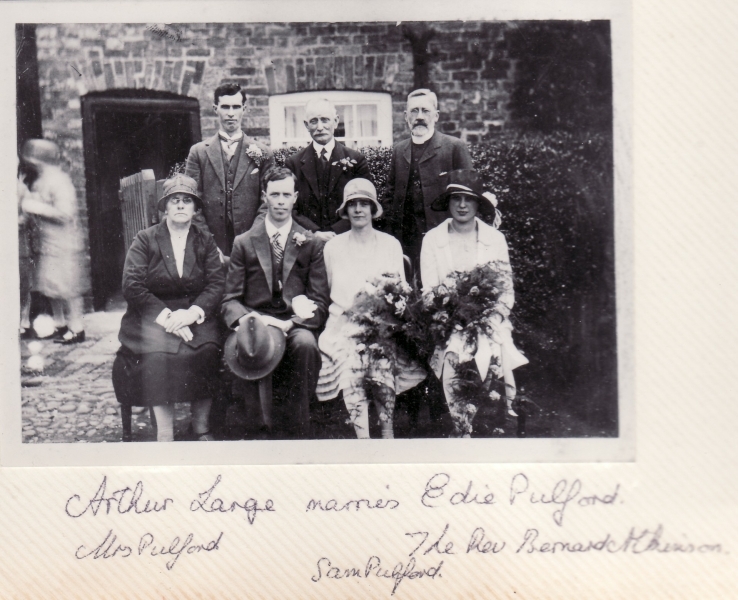 Arthur Large marries Edie Pulford.
Mrs Pulford
The Rev Bernard Atkinson.
Sam Pulford.